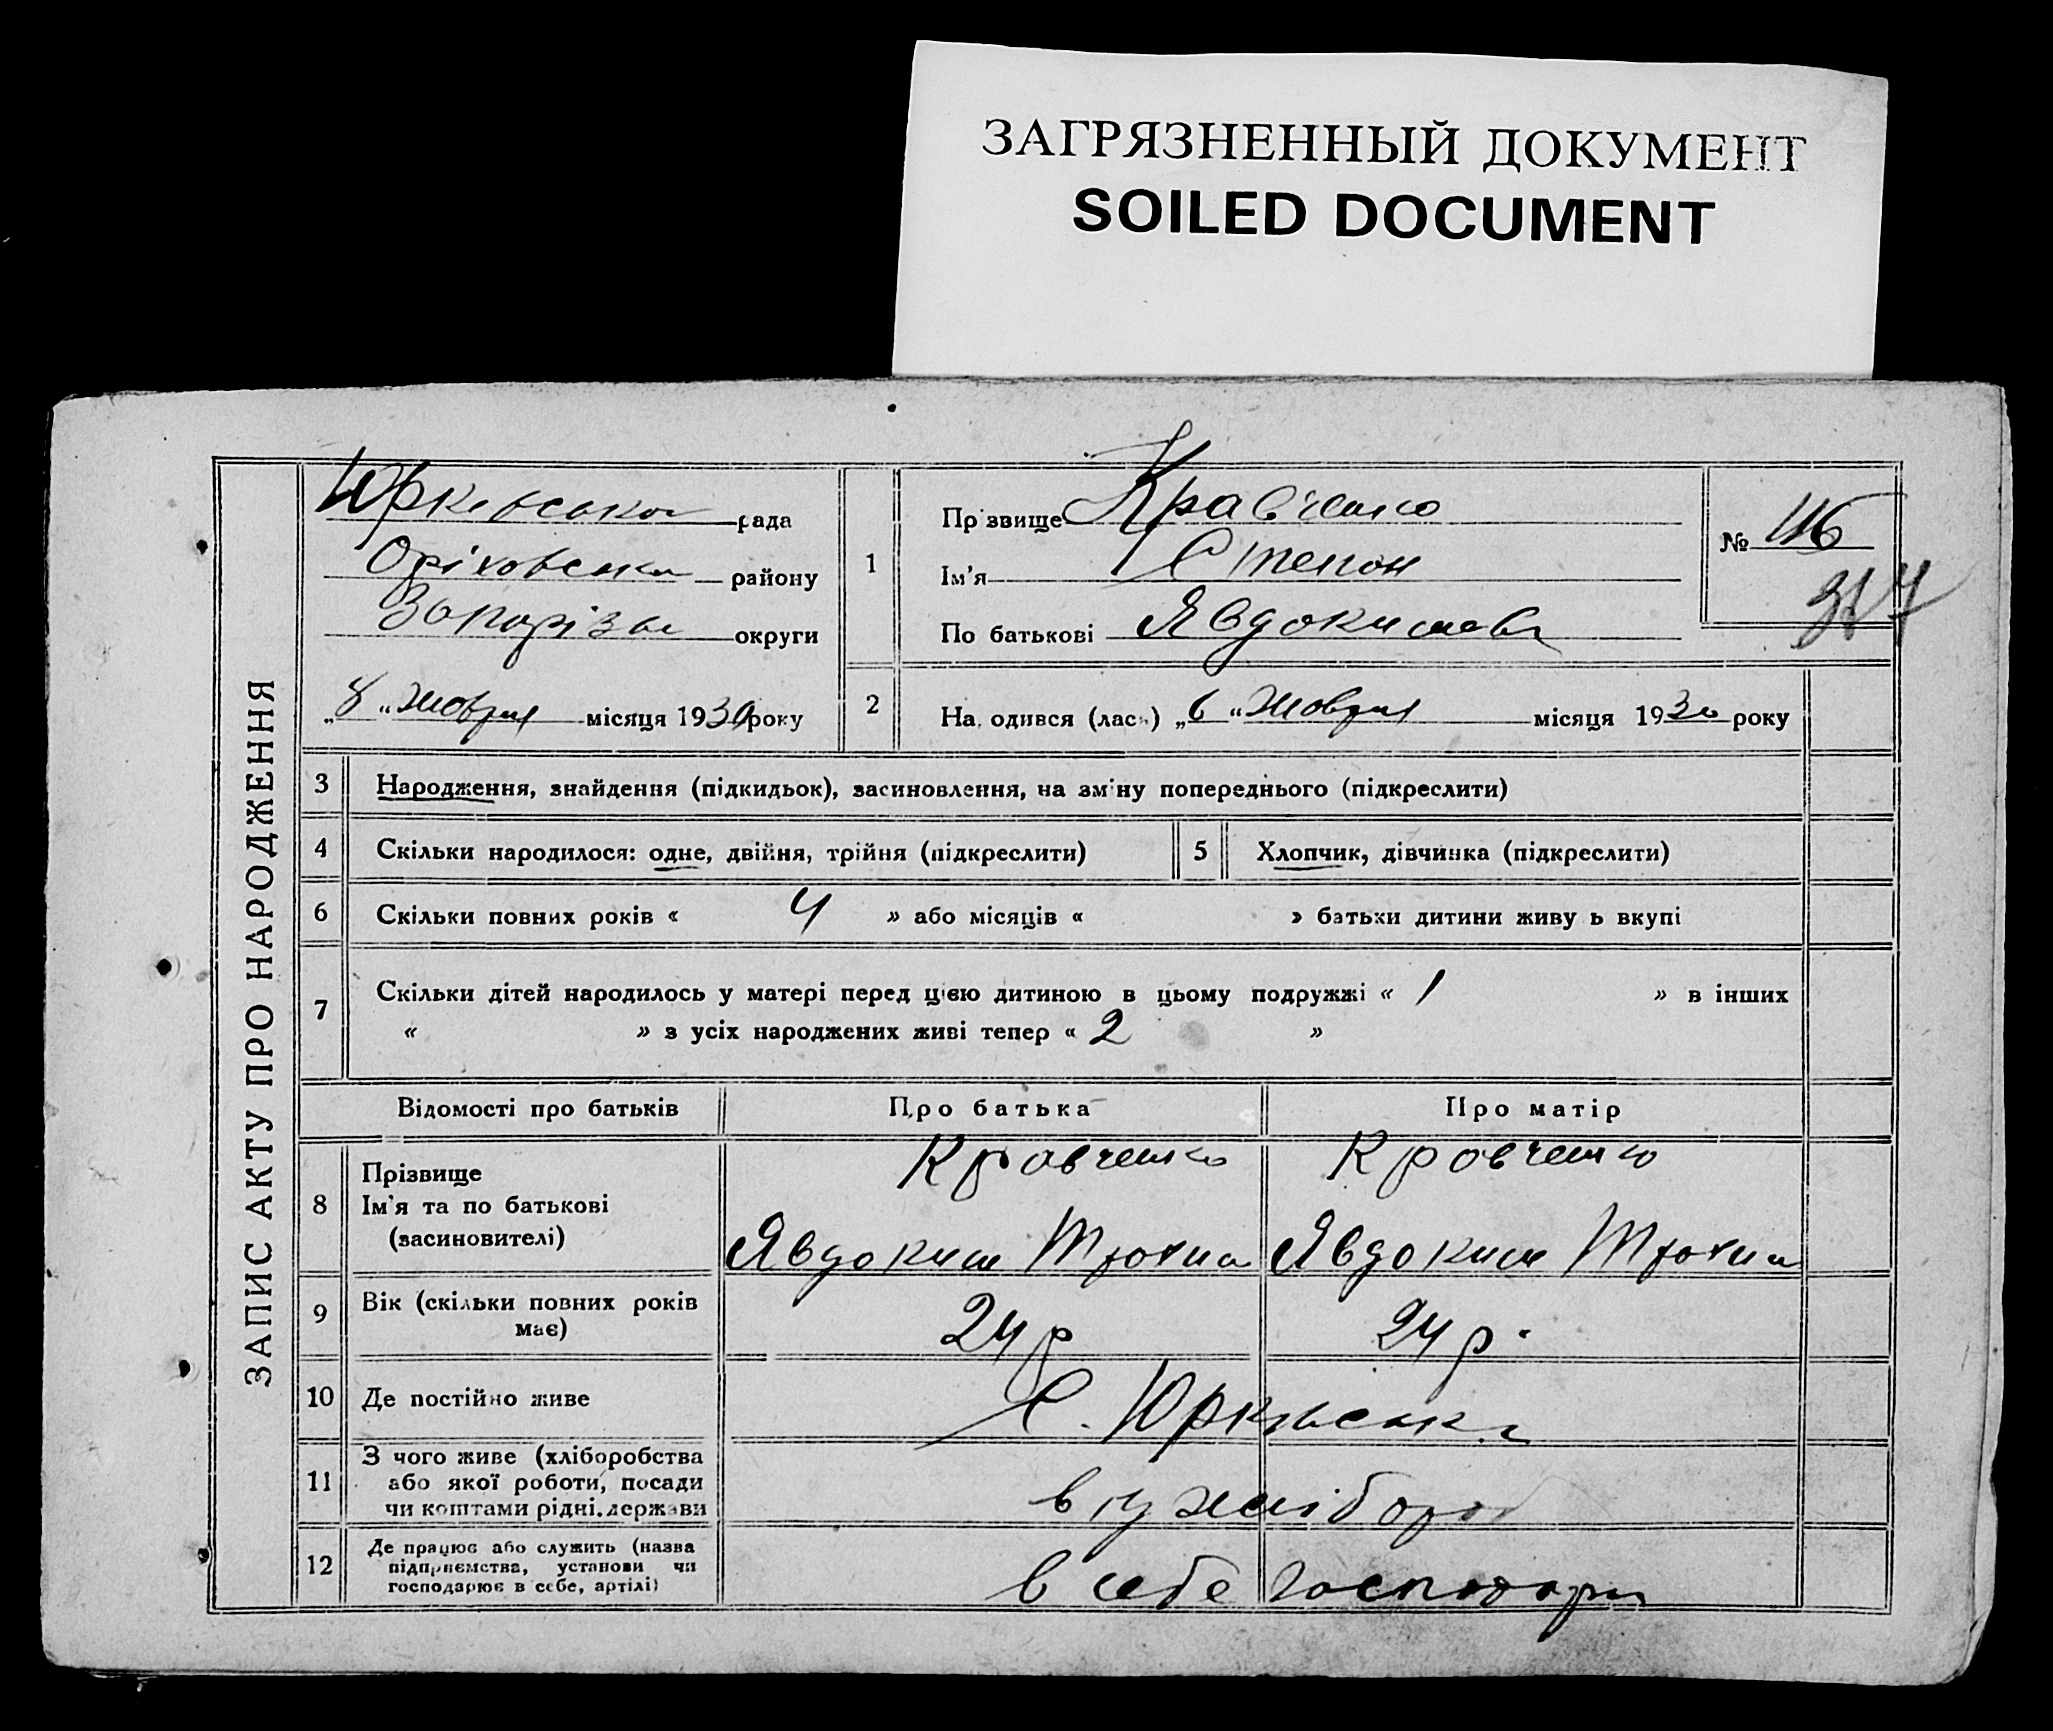 ЗАГРЯЗНЕННЫЙ ДОКУМЕНТ
SOILED DOCUMENT
ЗАПИС АКТУ ПРО НАРОДЖЕННЯ
Юрківська рада
Оріховська району
Запоріза округи
„8“ Жовтня місяця 1930 року
1
Прізвище Кравченко
Ім'я Степан
По батькові Явдокимов
№ 116
317
2
Народився (лась) „6“ Жовтня місяця 1930 року
3 Народження, знайдення (підкидьок), засиновлення, на зміну попереднього (підкреслити)
4 Скільки народилося: одне, двійня, трійня (підкреслити)
5 Хлопчик, дівчинка (підкреслити)
6 Скільки повних років « 4 » або місяців « » батьки дитини живуть вкупі
7 Скільки дітей народилось у матері перед цією дитиною в цьому подружжі « 1 » в інших
« » з усіх народжених живі тепер « 2 »
Відомості про батьків Про батька Про матір
8 Прізвище Кравченко Кравченко
Ім'я та по батькові
(засиновителі) Явдоким Явдоким
9 Вік (скільки повних років
має) 24 р 24 р.
10 Де постійно живе С. Юрківська
11 З чого живе (хліборобства
або якої роботи, посади
чи коштами рідні, держави
12 Де працює або служить (назва
підприємства, установи чи
господарює в себе, артілі) в себе господари